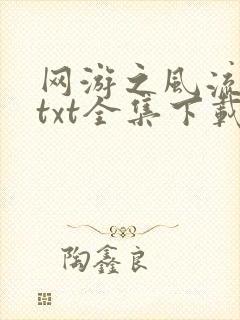 网游之风流
txt全集下载
陶鑫良